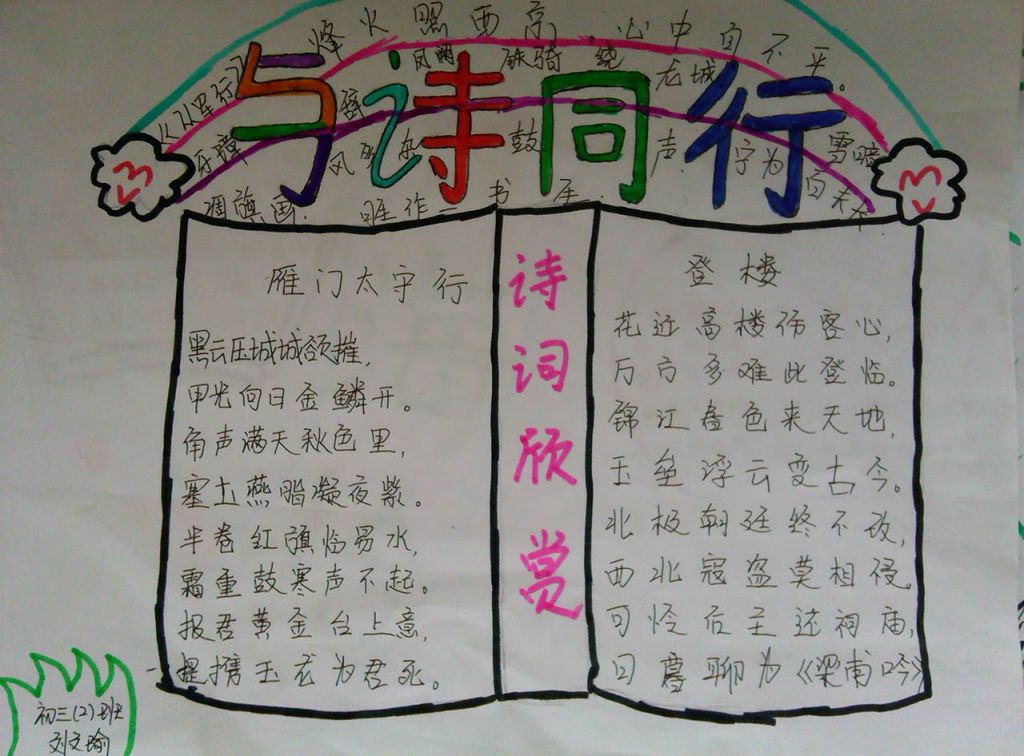 与诗同行
《从军行》烽火照西京,心中自不平。
牙璋辞凤阙,铁骑绕龙城.雪暗
凋旗画.风多杂鼓声.宁为百夫
作一书生.
雁门太守行
黑云压城城欲摧,
甲光向日金鳞开。
角声满天秋色里,
塞土燕脂凝夜紫。
半卷红旗临易水,
霜重鼓寒声不起。
报君黄金台上意,
提携玉龙为君死。
诗词欣赏
登楼
花近高楼伤客心,
万方多难此登临。
锦江春色来天地,
玉垒浮云变古今。
北极朝廷终不改,
西北寇盗莫相侵。
可怜后主还祠庙,
日暮聊为《梁甫吟》
初三(2)班
刘文瑜